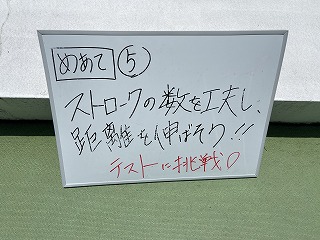 めあて ⑤
ストロークの数を工夫し、
距離を伸ばそう!!
テストに挑戦